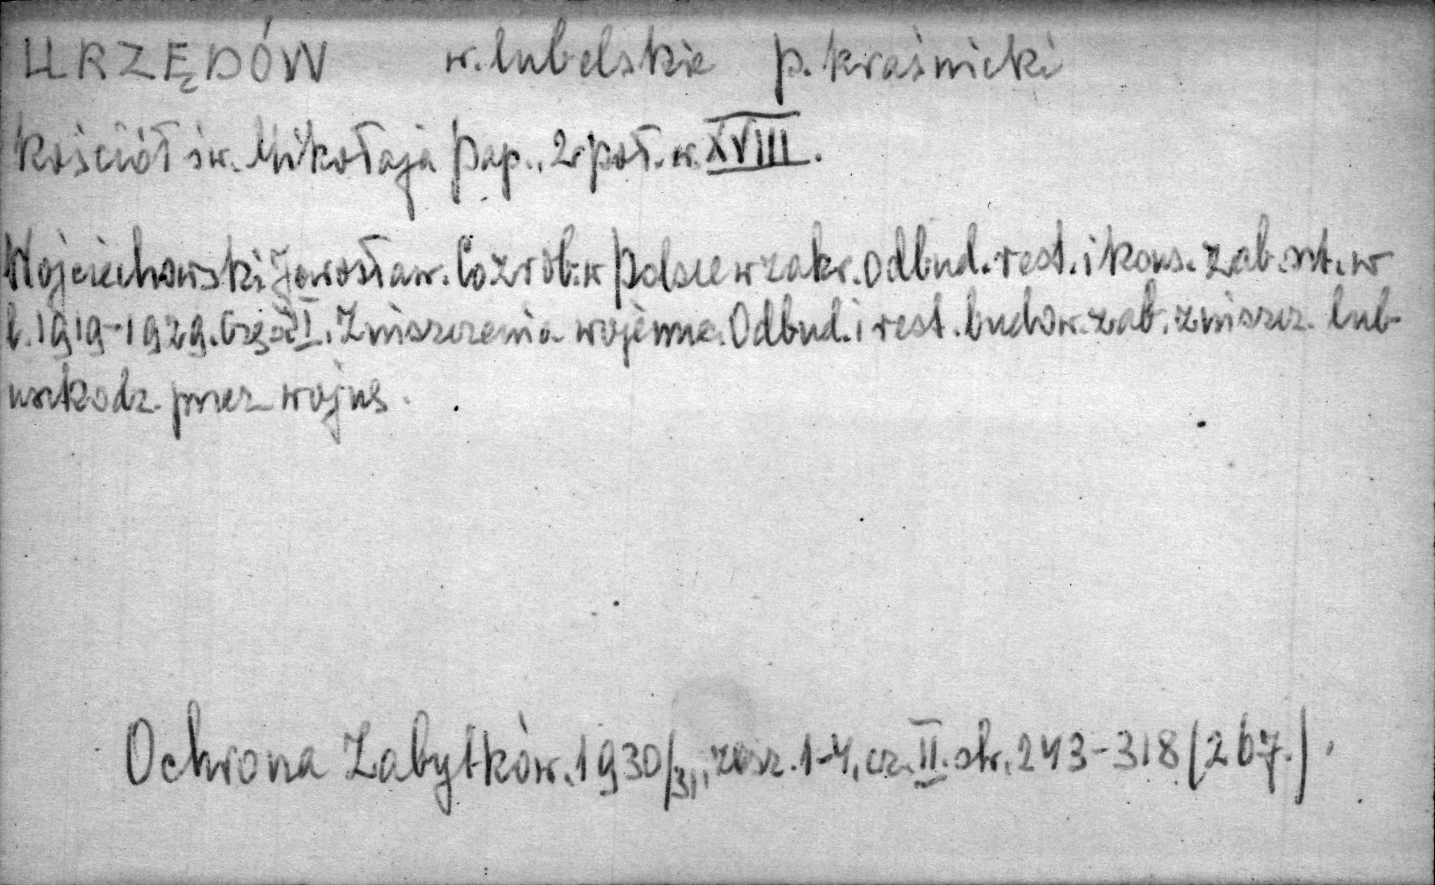 URZĘDÓW w. lubelskie p. kraśnicki
Kościół św. Mikołaja pap., 2 poł. w. XVIII.
Wojciechowski Jarosław. Co zrob. w Polsce w zakr. odbud. rest. i kons. zab. szt. w
l. 1919-1929. Część I. Zniszczenia wojenne. Odbud. i rest. budow. zab. zniszcz. lub
uszkodz. przez wojnę.
Ochrona Zabytków. 1930/31, zesz. 1-4, cz. II. str. 243-318 (267.)